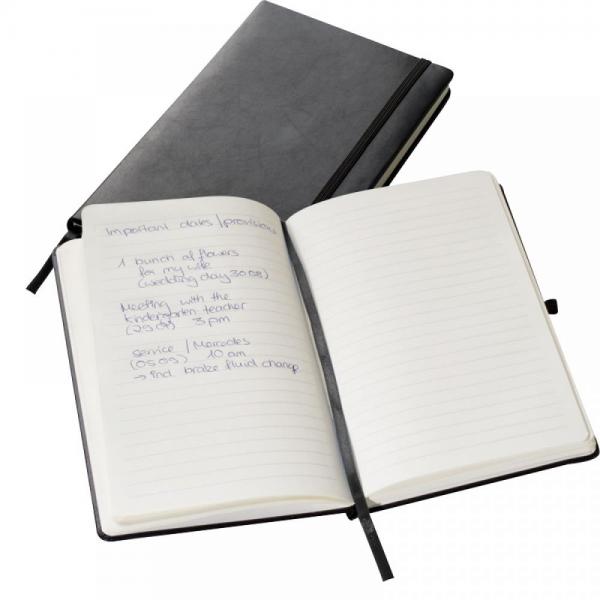 Important dates/provisions
1 bunch of flowers
for my wife
(wedding day 30.08)
Meeting with the
kindergarten teacher
(29.09) 3pm
service / Mercedes
(05.09) 10 am
→ incl. brake fluid change